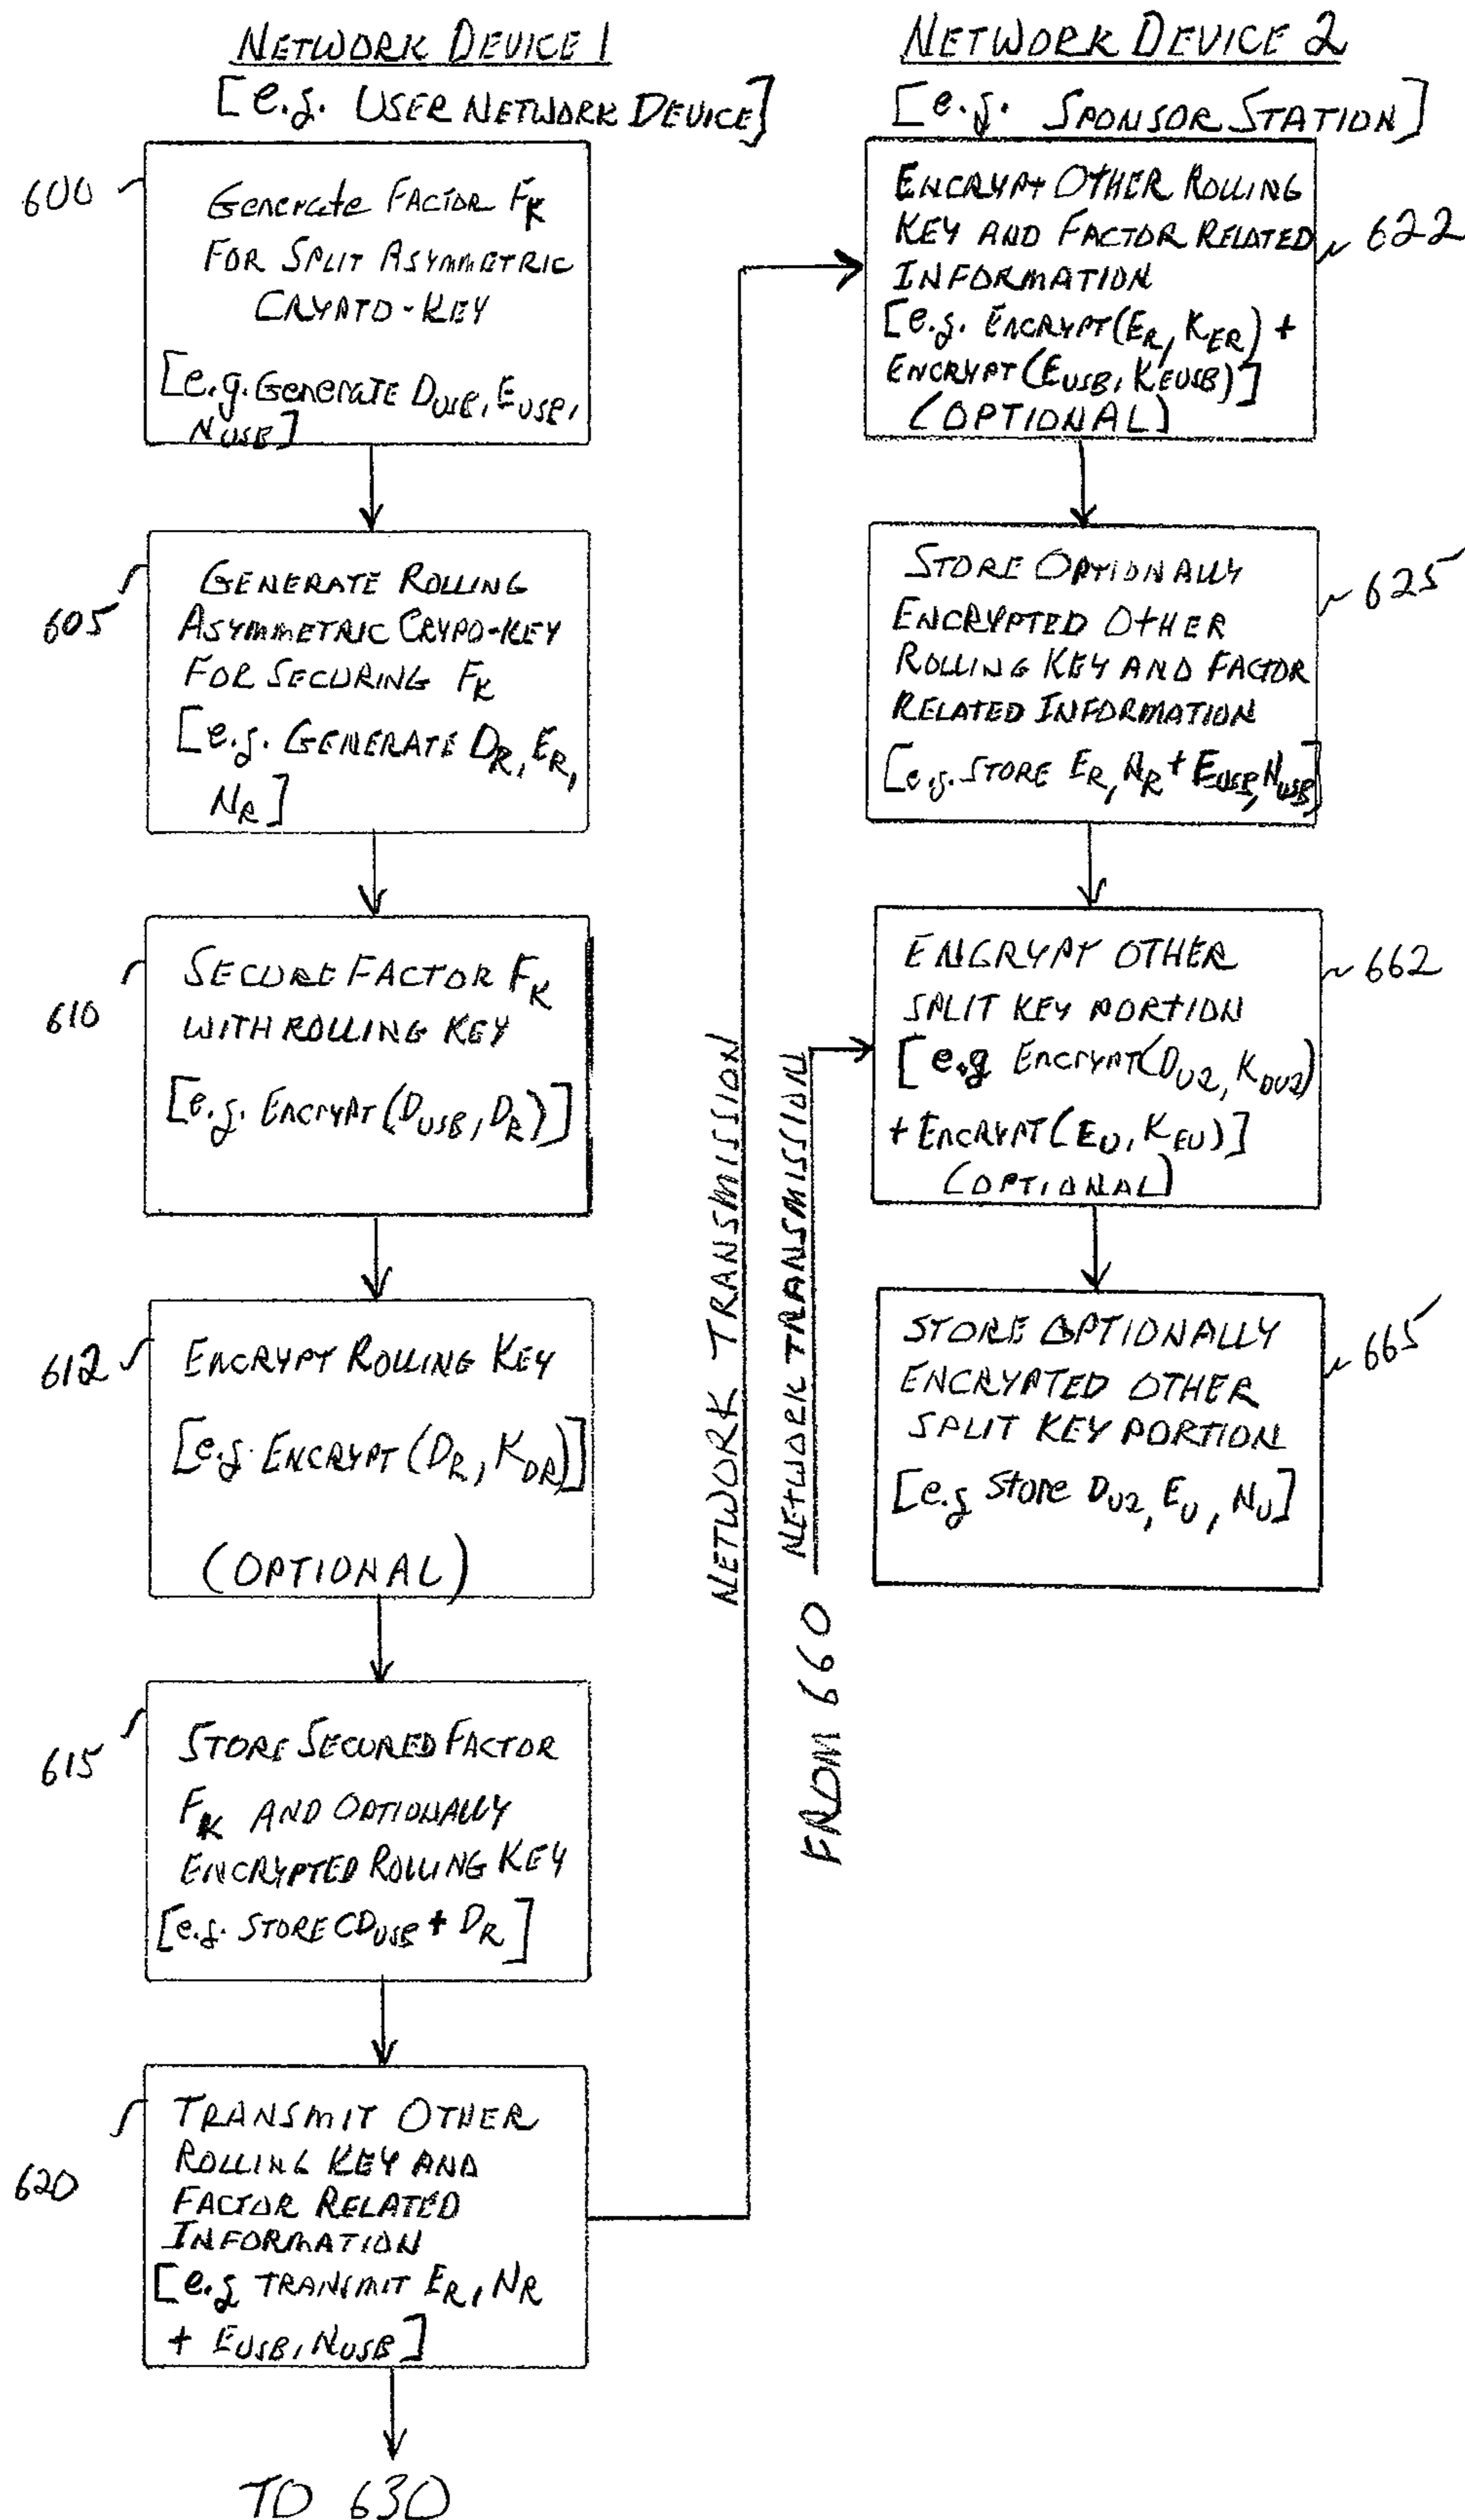 NETWORK DEVICE 1
[e.g. USER NETWORK DEVICE]
600
Generate FACTOR FK
FOR SPLIT ASYMMETRIC
CRYPTO-KEY
[e.g. Generate DUSB, EUSB,
NUSB]
605
GENERATE ROLLING
ASYMMETRIC CRYPO-KEY
FOR SECURING FK
[e.g. GENERATE DR, ER,
NR]
610
SECURE FACTOR FK
WITH ROLLING KEY
[e.g. ENCRYPT (DUSB, DR)]
612
ENCRYPT ROLLING KEY
[e.g. ENCRYPT (DR, KDR)]
(OPTIONAL)
615
STORE SECURED FACTOR
FK AND OPTIONALLY
ENCRYPTED ROLLING KEY
[e.g. STORE CDUSB + DR]
620
TRANSMIT OTHER
ROLLING KEY AND
FACTOR RELATED
INFORMATION
[e.g TRANSMIT ER, NR
+ EUSB, NUSB]
TO 630
NETWORK TRANSMISSION
FROM 660 NETWORK TRANSMISSION
NETWORK DEVICE 2
[e.g. SPONSOR STATION]
ENCRYPT OTHER ROLLING
KEY AND FACTOR RELATED
INFORMATION
[e.g. ENCRYPT (ER, KER) +
ENCRYPT (EUSB, KEUSB)]
(OPTIONAL)
622
STORE OPTIONALLY
ENCRYPTED OTHER
ROLLING KEY AND FACTOR
RELATED INFORMATION
[e.g. STORE ER, NR + EUSB, NUSB]
625
ENCRYPT OTHER
SPLIT KEY PORTION
[e.g ENCRYPT (DU2, KDU2)
+ ENCRYPT (EU, KEU)]
(OPTIONAL)
662
STORE OPTIONALLY
ENCRYPTED OTHER
SPLIT KEY PORTION
[e.g Store DU2, EU, NU]
665